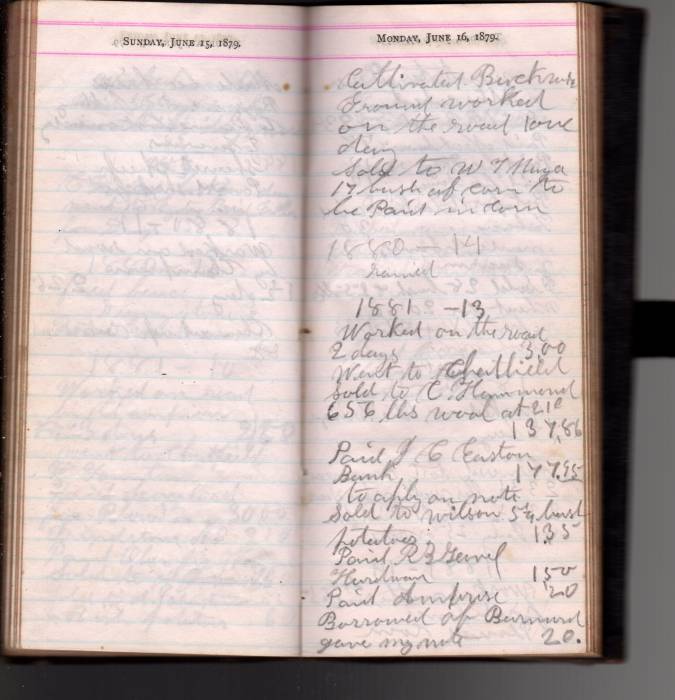 SUNDAY, JUNE 15, 1879.
MONDAY, JUNE 16, 1879.
Cultivated Buckw
Ground worked
on the road one
day
Sold to W T
17 bush of corn to
be Paid in corn
1880 - 14
rained
1881 - 13
Worked on the road
2 days 3.00
Went to Chatfield
Sold to C Hammond
656 lbs wool at 21c
137,86
Paid J C Easton
Bank 177.95
to aply on note
Sold to Wilson 5¼ bush
potatoes 135
Paid R
Hardware 150
Paid 20
Borrowed of Barnard
gave my note 20.